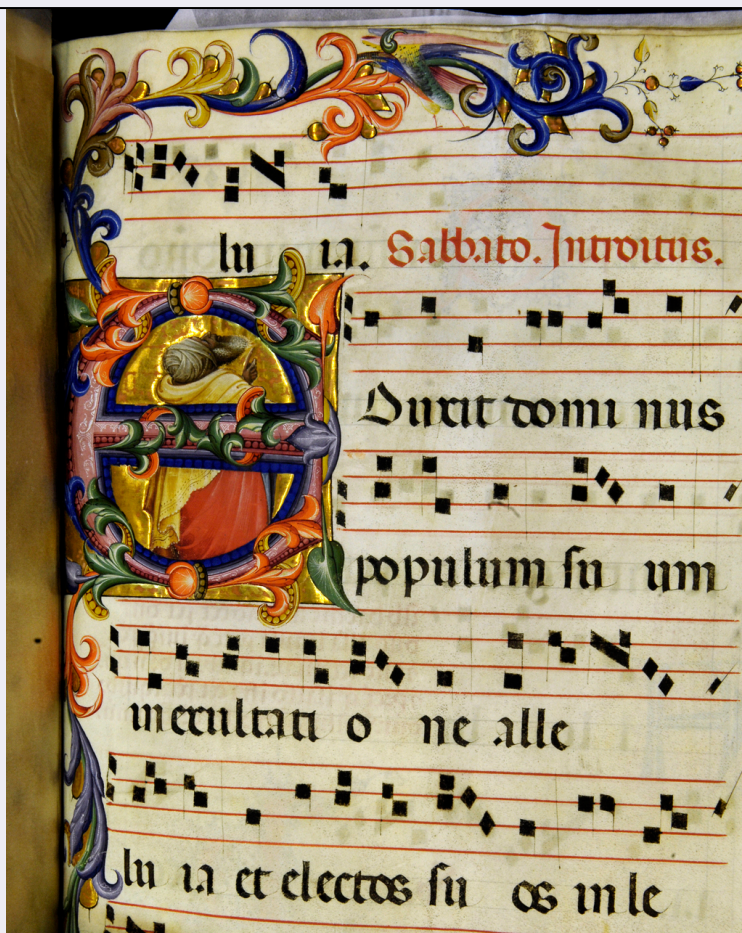 lu ia. Sabbato. Introitus.
EDuxit domi nus
populum su um
in exultati o ne alle
lu ia et electos su os in le